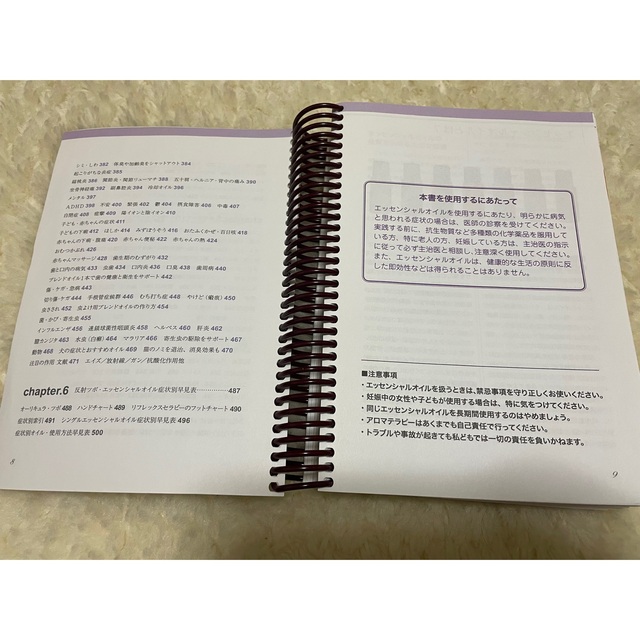 シミ・しわ 382　老化や加齢臭をシャットアウト 384
起こりがちな炎症 385
腱鞘炎 386　関節炎・関節リューマチ 389　五十肩・ヘルニア・背中の痛み 390
坐骨神経痛 392　副鼻腔炎 393　冷却オイル 396
メンタル 397
ADHD 398　不安 400　緊張 402　鬱 404　摂食障害 406　中毒 407
自閉症 408　痙攣 409　陽イオンと陰イオン 410
子ども・赤ちゃんの症状 411
子どもの下痢 412　はしか 414　みずぼうそう 416　おたふくかぜ・百日咳 418
赤ちゃんの下痢・腹痛 420　赤ちゃん便秘 422　赤ちゃんの熱 424
おむつかぶれ 426
赤ちゃんマッサージ 428　歯生期のむずがり 432
歯と口内の病気 433　虫歯 434　口内炎 436　口臭 438　歯周病 440
ブレンドオイル1本で歯の健康と衛生をサポート 442
傷・ケガ・急病 443
切り傷・ケガ 444　手根管症候群 446　むち打ち症 448　やけど(瘢痕) 450
虫さされ 452　虫よけ用ブレンドオイルの作り方 454
菌・かび・寄生虫 455
インフルエンザ 456　連鎖球菌性咽頭炎 458　ヘルペス 460　肝炎 462
腟カンジタ 463　水虫(白癬) 464　マラリア 466　寄生虫の駆除をサポート 467
動物 468　犬の症状とおすすめオイル 469　猫のノミを退治、消臭効果も 470
注目の作用 文献 471　エイズ／放射線／ガン／抗酸化作用他
chapter.6　反射ツボ・エッセンシャルオイル症状別早見表…………487
オーリキュラ・ツボ 488　ハンドチャート 489　リフレックスセラピーのフットチャート 490
症状別索引 491　シングルエッセンシャルオイル症状別早見表 496
症状別オイル・使用方法早見表 500
8
本書を使用するにあたって
エッセンシャルオイルを使用するにあたり、明らかに病気
と思われる症状の場合は、医師の診察を受けてください。
実践する前に、抗生物質など多種類の化学薬品を服用して
いる方、特に老人の方、妊娠している方は、主治医の指示
に従って必ず主治医と相談し、注意深く使用してください。
また、エッセンシャルオイルは、健康的な生活の原則に反
した即効性などは得られることはありません。
■注意事項
・エッセンシャルオイルを扱うときは、禁忌事項を守り正しくお使いください。
・妊娠中の女性や子どもが使用する場合は、特に気をつけてください。
・同じエッセンシャルオイルを長期間使用するのはやめましょう。
・アロマテラピーはあくまでも自己責任で行ってください。
・トラブルや事故が起きても私どもでは一切の責任を負いかねます。
9